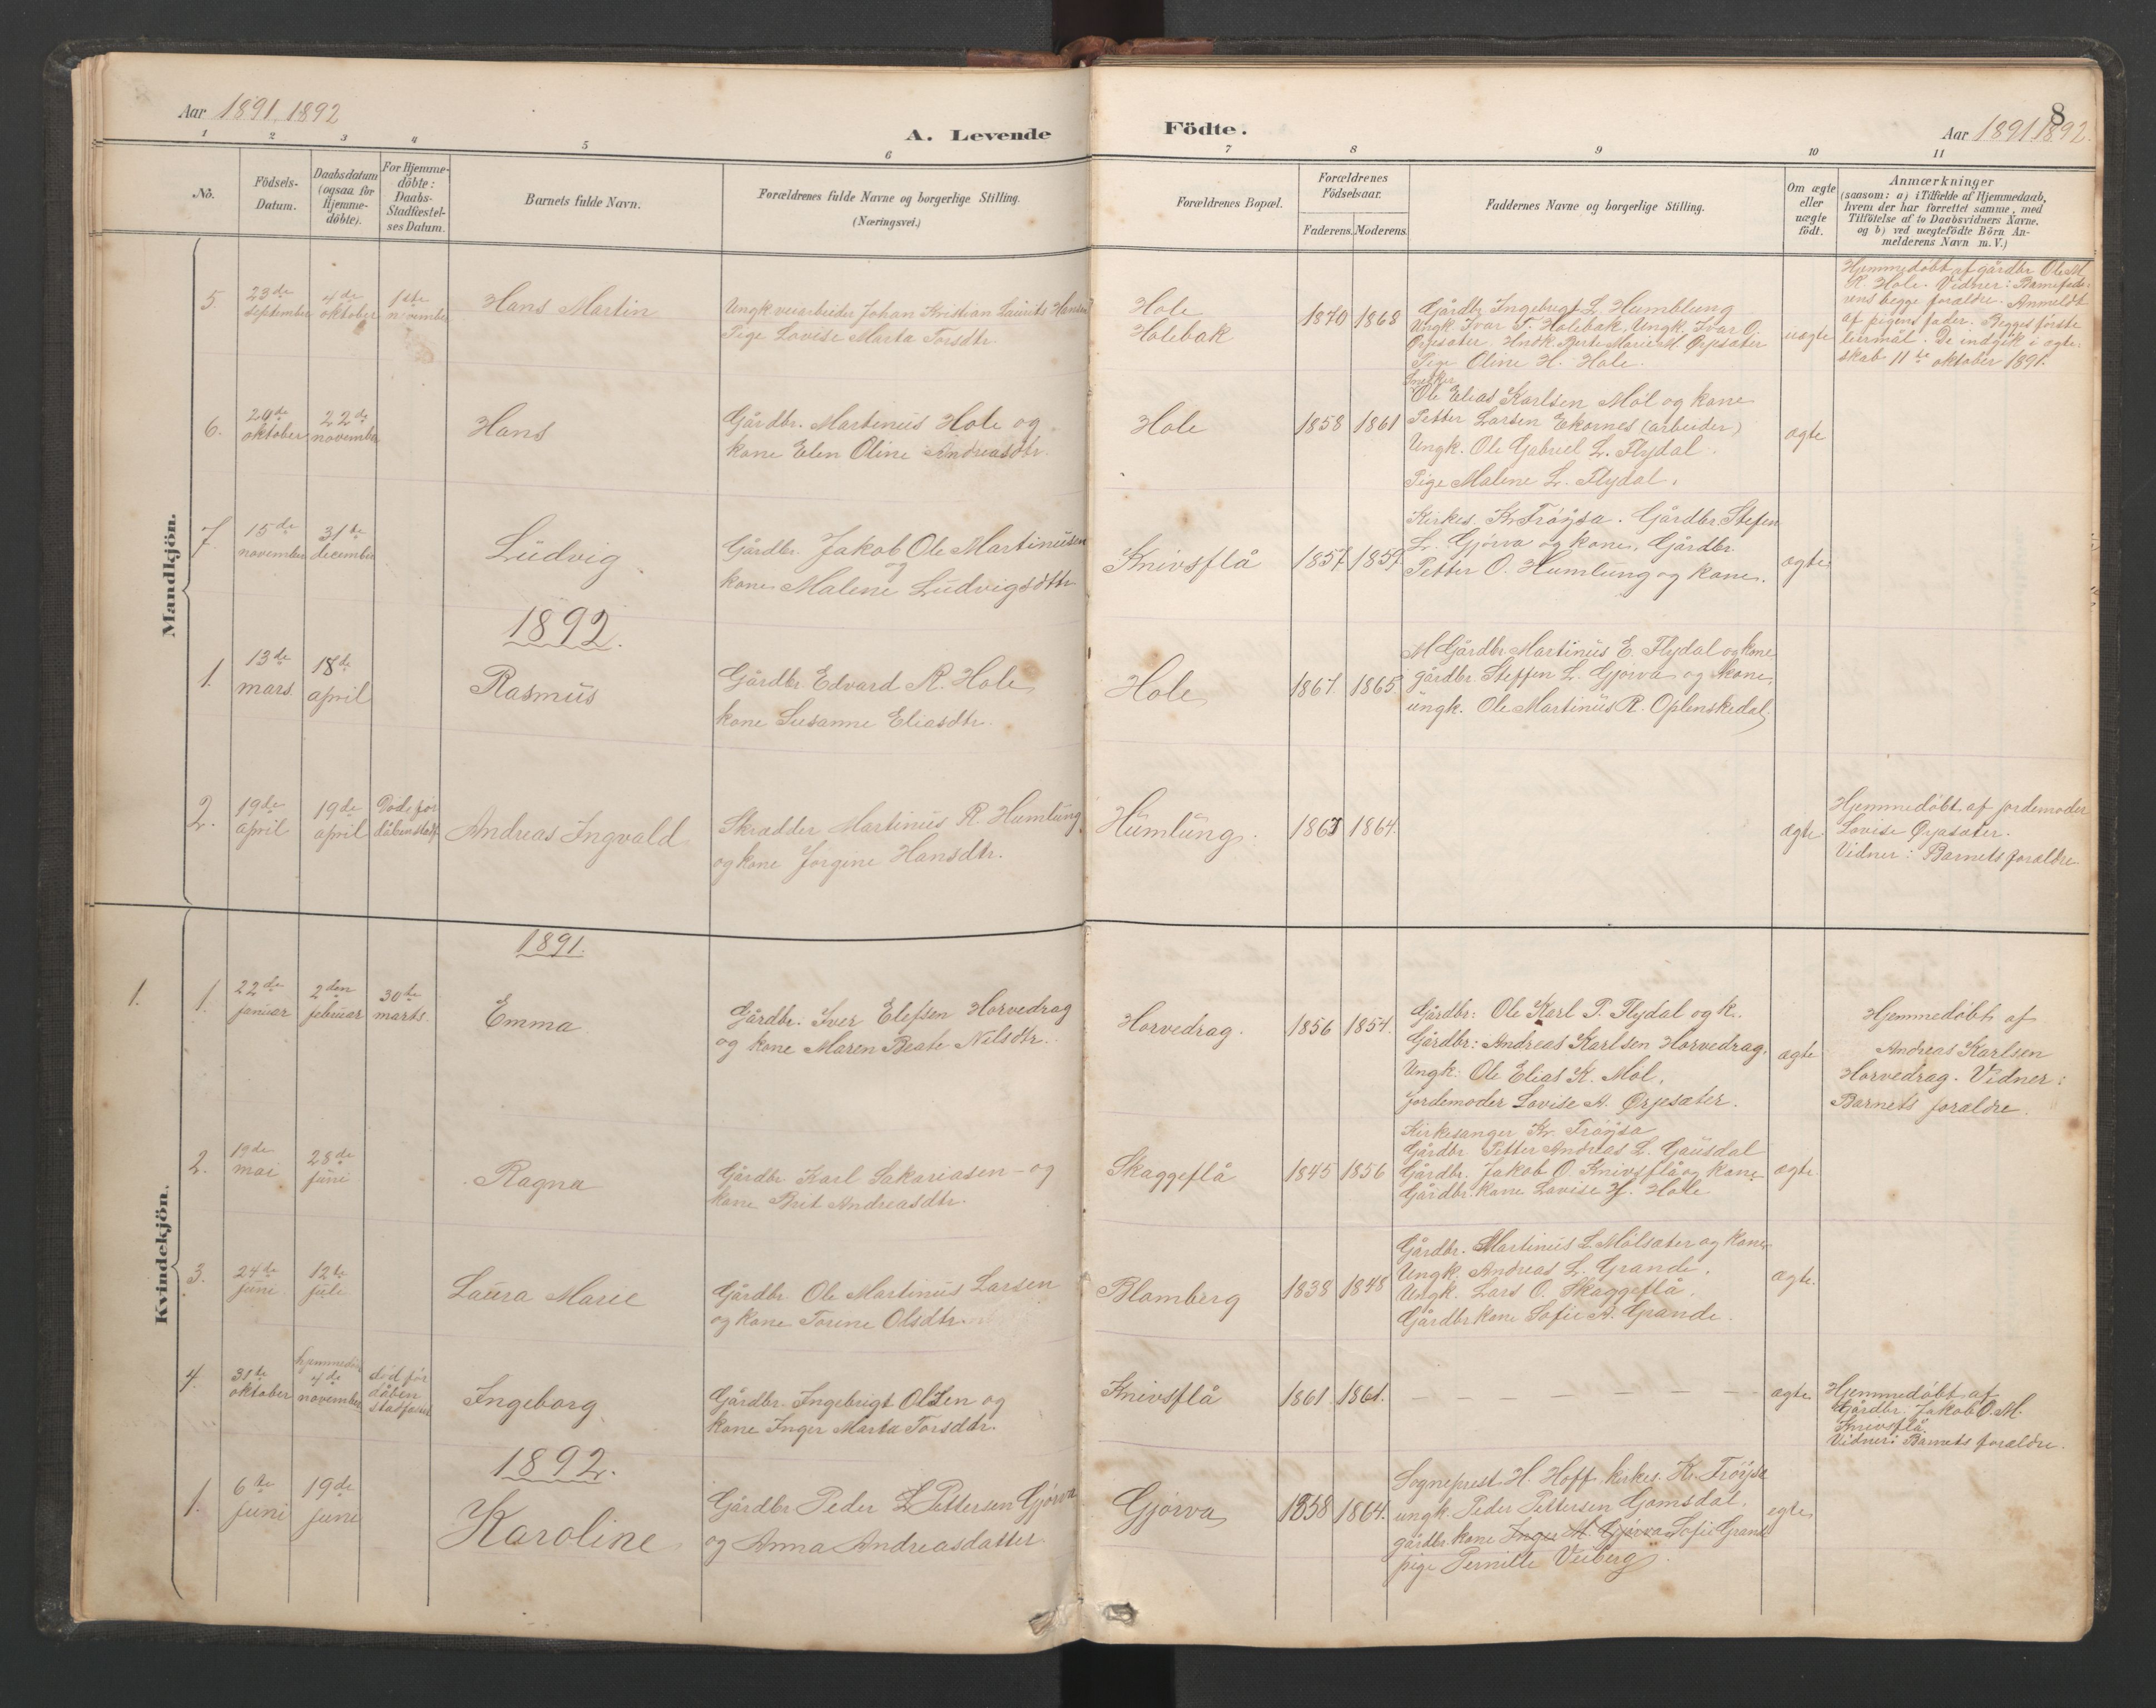 Aar 1891, 1892
A. Levende Födte.
8
Aar 1891 1892.
1 2 3 4 5 6 7 8 9 10 11
No.
Födsels-
Datum.
Daabsdatum
(ogsaa for
Hjemme-
döbte).
For Hjemme-
döbte:
Daabs-
Stadfæstel-
ses Datum.
Barnets fulde Navn.
Forældrenes fulde Navne og borgerlige Stilling.
(Næringsvei.)
Forældrenes Bopæl.
Forældrenes
Födselsaar.
Faderens. Moderens.
Faddernes Navne og borgerlige Stilling.
Om ægte
eller
uægte
födt.
Anmærkninger
(saasom: a) i Tilfælde af Hjemmedaab,
hvem der har forrettet samme, med
Tilföielse af to Daabsvidners Navne.
og b) ved uægtefödte Börn An-
melderens Navn m. V.)
Mandkjön.
5.
23de
september
4de
oktober
1ste
november
Hans Martin
Ungk veiarbeider Johan Kristian Laurits Hansen
Pige Lovise Marta Torsdtr.
Hole
Holebak
1870 1868
Gårdbr Ingebrigt L. Humblung
Ungk Ivar T. Holebak, Ungk. Ivar O.
Ørjesæter. Hndk. Berte Marie M Ørjesæter
Pige Oline H. Hole.
uægte
Hjemmedøbt af gårdbr Ole M.
R. Hole. Vidner: Barnefade-
rens begge forældre. Anmeldt
af pigens fader. Begges første
leiermål. De indgik i ægte-
skab 11te oktober 1891.
6.
24de
oktober
22de
november
Hans
Gårdbr. Martinus Hole og
kone Elen Oline Andreasdtr.
Hole
1858 1861
Snekker
Ole Elias Karlsen Mol og kone
Petter Larsen Ekornes (arbeider)
Ungk. Ole Gabriel L. Flydal.
Pige Malene L. Flydal.
ægte
7.
15de
november
31te
december
Ludvig
Gårdbr. Jakob Ole Martinusen
og
kone Malene Ludvigsdttr
Knivsflå
1857. 1859.
Kirkes. K. Frøysa. Gårdbr. Stefen
L. Gjørva og kone, Gårdbr.
Petter O. Humlung og kone.
ægte
1892.
1.
13de
mars.
18de
april
Rasmus
Gårdbr. Edvard R. Hole
kone Susanne Eliasdtr.
Hole
1867. 1865
M Gårdbr Martinus E. Flydal og kone
gårdbr. Steffen L. Gjørva og kone,
ungk. Ole Martinus R. Oplenskedal,
2.
19de
april
19de
april
Døde før
dåbenstadf.
Andreas Ingvald
Skrædder Martinus R. Humlung
og kone Jørgine Hansdtr.
Humlung.
1864.
ægte.
Hjemmedøbt af jordemoder
Lovise Ørjasæter.
Vidner: Barnets forældre.
Kvindekjön.
1891.
1.
1.
22de
januar
2den
februar
30te
marts.
Emma
Gårdbr. Iver Elefsen Horvedrag
og kone Maren Beate Nilsdtr.
Horvedrag.
1856 1854.
Gårdbr: Ole Karl P. Flydal og k.
Gårdbr: Andreas Karlsen Horvedrag.
Ungk: Ole Elias K. Mol.
Jordemoder Lovise A. Ørjesæter.
ægte
Hjemmedøbt af
Andreas Karlsen
Horvedrag. Vidner:
Barnets forældre.
2.
19de
mai
28de
juni
Ragna
Gårdbr. Karl Sakariasen - og
kone Brit Andreasdtr.
Skaggeflå
1845 1856
Kirkesanger Kr. Frøysa
Gårdbr. Petter Andreas L. Gausdal
Gårdbr. Jakob O. Knivsflå og kone
Gårdbr. kone Lovise J. Hole
ægte.
3.
24de
juni
12te
juli
Laura Marie
Gårdbr Ole Martinus Larsen
og kone Torine Olsdtr.
Blomberg
1838 1848
Gårdbr. Martinus L. Molsæter og kone
Ungk. Andreas L. Grande.
Ungk. Lars O. Skaggeflå.
Gårdbr kone Sofie A. Grande.
ægte.
4.
31te
oktober
hjemmedøbt
4de
november
død før
dåben
stadfæstet
Ingeborg
Gårdbr. Ingebrigt Olsen og
kone Inger Marta Torsdtr.
Knivsflå
1861. 1861.
— — — — — — —
ægte
Hjemmedøbt af
Gårdbr. Jakob O. M.
Knivsflå.
Vidner: Barnets forældre.
1892.
1.
6te
juni
19de
juni
Karoline
Gårdbr Peder L Pettersen Gjørva
og Anna Andreasdatter.
Gjørva
1858 1864.
Sogneprest H. Hoff, kirkes. K. Frøysa
ungk. Peder Pettersen Gomsdal,
gårdbr. kone Inger M. Gjørva Sofie Grande
pige Pernille Veiberg.
egte